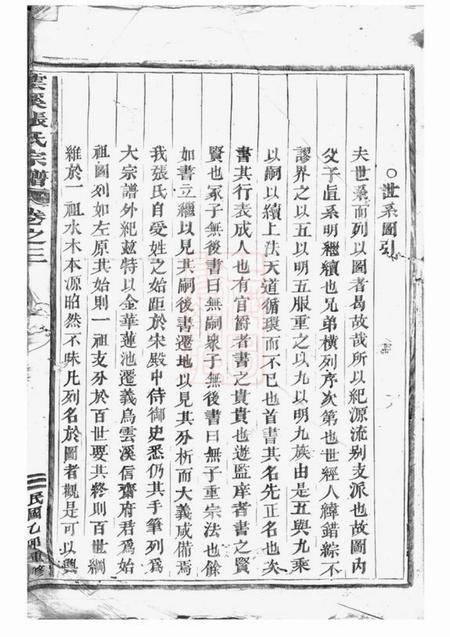 ○世系圖引
夫世系而列以圖者曷故哉所以紀源流别支派也故圖内
父子直系明繼續也兄弟横列序次第也世經人緯錯綜不
謬界之以五以明五服重之以九以明九族由是五與九乘
以嗣以續上法天道循環而不已也首書其名先正名也次
書其行表成人也有官爵者書之貴貴也遊監庠者書之賢
賢也冢子無後書曰無嗣衆子無後書曰無子重宗法也餘
如書立繼以見其嗣後書遷地以見其分析而大義咸備焉
我張氏自受姓之始距於宋殿中侍御史悉仍其手筆列爲
大宗譜外紀兹特以金華蓮池遷義烏雲溪信齋府君爲始
祖圖列如左原其始則一祖支分於百世要其終則百世綱
維於一祖水木本源昭然不昧凡列名於圖者觀是可以興
雲溪張氏宗譜
卷之二
民國乙卯重修